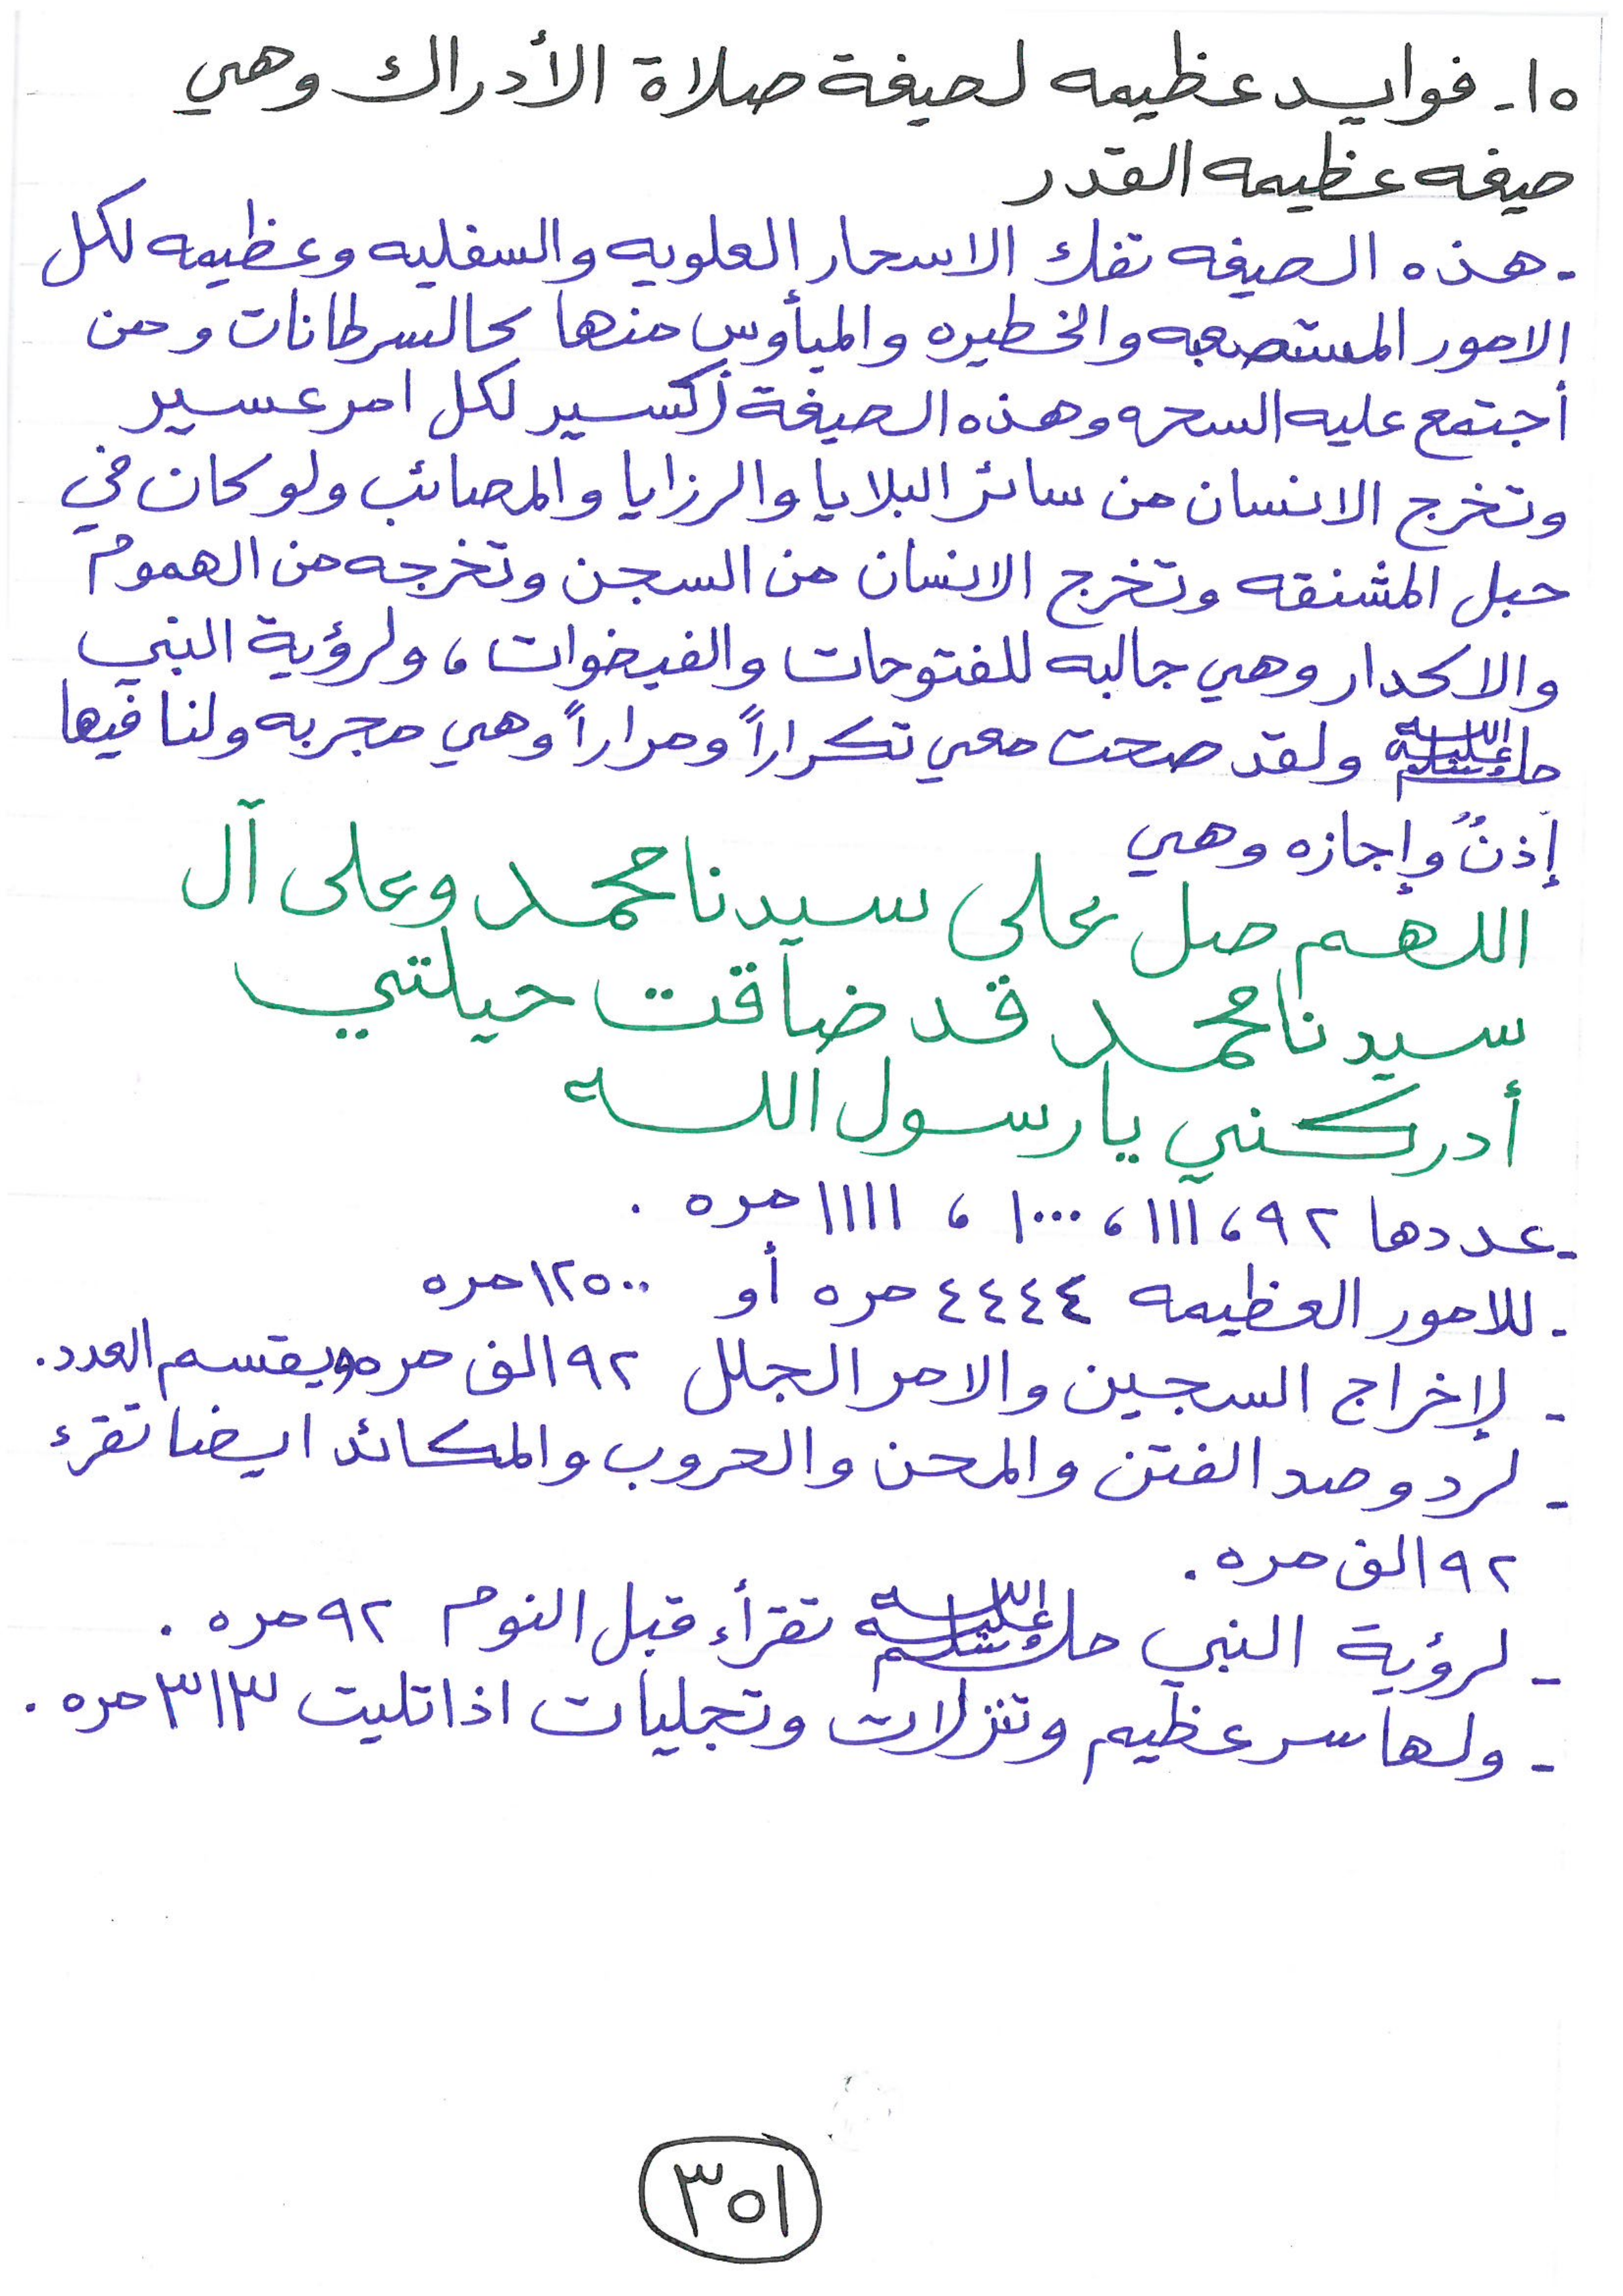 ١٥- فوايد عظيمه لصيغة صلاة الأدراك وهي
صيغه عظيمه القدر
- هذه الصيغه تفك الاسحار العلويه والسفليه وعظيمه لكل
الامور المستصعبه والخطيره والميأوس منها كالسرطانات ومن
أجتمع عليه السحره وهذه الصيغة إكسير لكل امر عسير
وتخرج الانسان من سائر البلايا والرزايا والمصائب ولو كان في
حبل المشنقه وتخرج الانسان من السجن وتخرجه من الهموم
والاكدار وهي جالبه للفتوحات والفيضوات ، ولرؤية النبي
صلى الله عليه وسلم ولقد صحت معي تكراراً ومراراً وهي مجربه ولنا فيها
إذنٌ وإجازه وهي
اللهم صل على سيدنا محمد وعلى آل
سيدنا محمد قد ضاقت حيلتي
أدركني يا رسول الله
- عددها ٩٢ ، ١١١ ، ١٠٠٠ ، ١١١١ مره .
- للامور العظيمه ٤٤٤٤ مره أو ١٢٥٠٠ مره
- لإخراج السجين والامر الجلل ٩٢ الف مره ويقسم العدد.
- لرد وصد الفتن والمحن والحروب والمكائد ايضا تقرء
٩٢ الف مره .
- لرؤية النبي صلى الله عليه وسلم تقرأء قبل النوم ٩٢ مره .
- ولها سر عظيم وتنزلات وتجليات اذا تليت ٣١٣ مره .
٣٥١